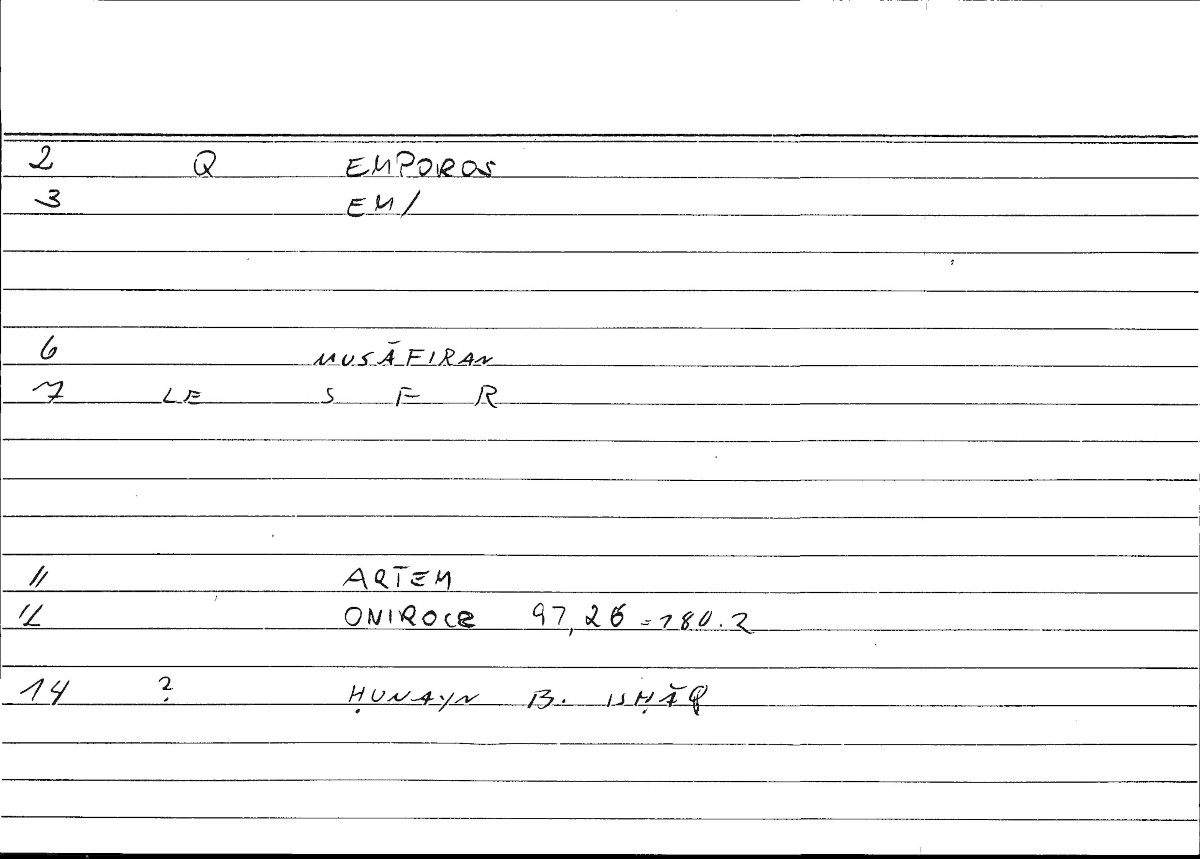 2 Q EMPOROS
3 EM/
6 MUSĀFIRAN
7 LE S F R
11 ARTEM
12 ONIROCR 97,26=180.2
14 ? ḤUNAYN B. ISḤĀQ